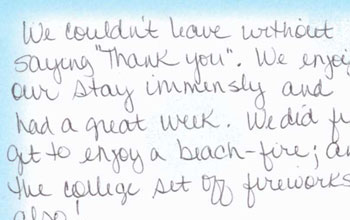 We couldn't leave without
saying "Thank you". We enjoy
our stay immensly and
had a great week. We did
get to enjoy a beach-fire; 
the college set off fireworks
also!